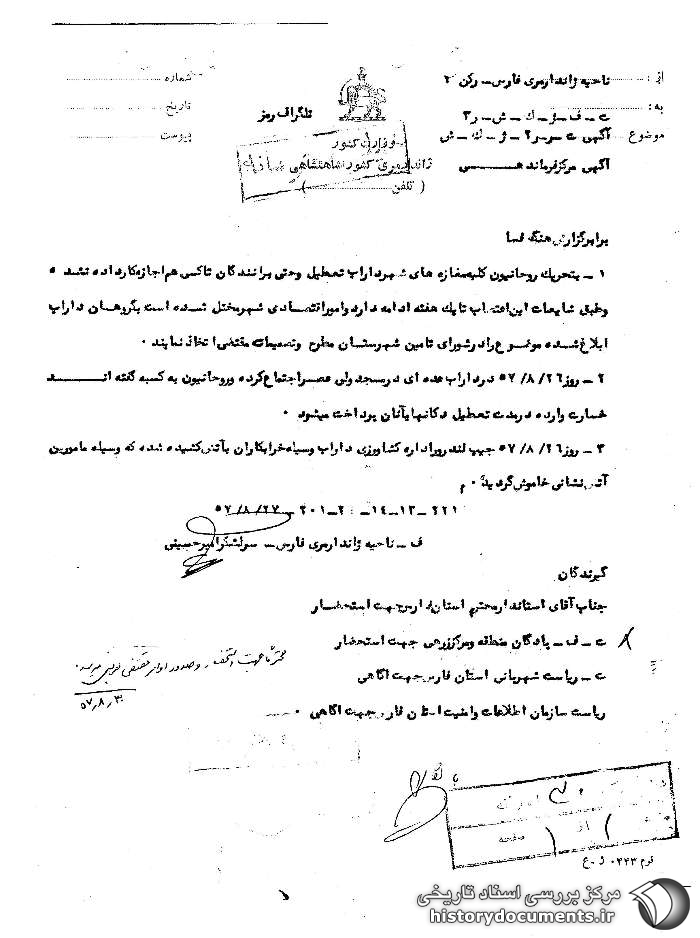 از : ناحیه ژاندارمری فارس ـ رکن ۲
به : ت ـ ف ـ ژ ـ ك ـ ش ـ ر۳
موضوع آگهی ت ـ ر۲ ـ ژ ـ ك ـ ش
آگهی مرکز فرماندهـــی
تلگراف رمز
وزارت کشور
ژاندارمری کشور شاهنشاهی
( تلفن )
شماره
تاریخ
پیوست
برابر گزارش هنگ فسا
۱ ـ بتحریك روحانیون کلیه مغازه های شهر داراب تعطیل وحتی برانندگان تاکسی هم اجازه کار داده نشده
وطبق شایعات این اعتصاب تا یك هفته ادامه دارد وامور اقتصادی شهر مختل شده است بگروهان داراب
ابلاغ شده موضوع را در شورای تامین شهرستان مطرح وتصمیمات مقتضی اتخاذ نمایند ۰
۲ ـ روز ۲۶/ ۸/ ۵۷ در داراب عده ای در مسجد ولی عصر اجتماع کرده وروحانیون به کسبه گفته انــد
خسارت وارده در مدت تعطیل دکانها بآنان پرداخت میشود ۰
۳ ـ روز ۲۶/ ۸/ ۵۷ جیپ لندرور اداره کشاورزی داراب وسیله خرابکاران بآتش کشیده شده که وسیله مامورین
آتش نشانی خاموش گردید ۰ م
۲۲۱ ـ ۱۳ ـ ۱۴ ـ : ۲ ـ ۲۰۱ ـ ۲۷/ ۸/ ۵۷
ف ـ ناحیه ژاندارمری فارس ـ سرلشگر امیرحسینی
گیرندگان
جناب آقای استاندار محترم استان فارس جهت استحضار
ت ـ ف ـ پادگان منطقه ومرکز زرهی جهت استحضار
ت ـ ریاست شهربانی استان فارس جهت آگاهی
ریاست سازمان اطلاعات وامنیت استان فارس جهت آگاهی ۰
محترماً جهت استحضار و صدور اوامر مقتضی بعرض میرسد.
۵۷٫۸٫۳۰
۱ از ۱ صفحه
فرم ۰۲۲۳ ژ۰ع
مرکز بررسی اسناد تاریخی
historydocuments.ir